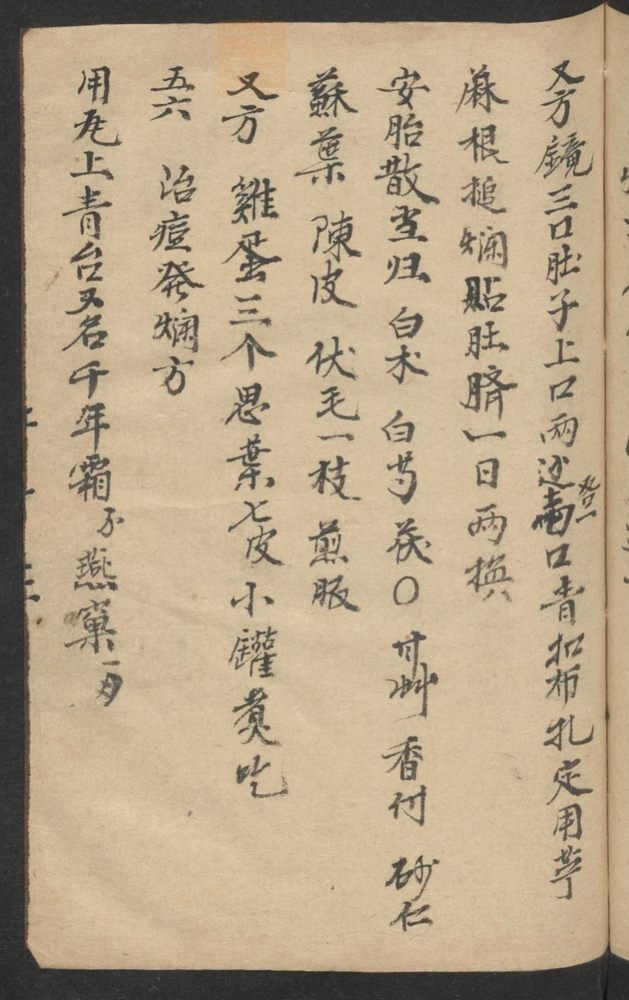 又方鏡三口肚子上口兩边口青扣布扎定用苧
麻根搥爛貼肚臍一日兩換
安胎散当归 白术 白芍 茯〇 甘艸 香付 砂仁
蘇葉 陳皮 伏毛一枝 煎服
又方 雞蛋三个 思葉七皮 小罐煑吃
五六 治痘發爛方
用瓦上青台又名千年霜 燕窠